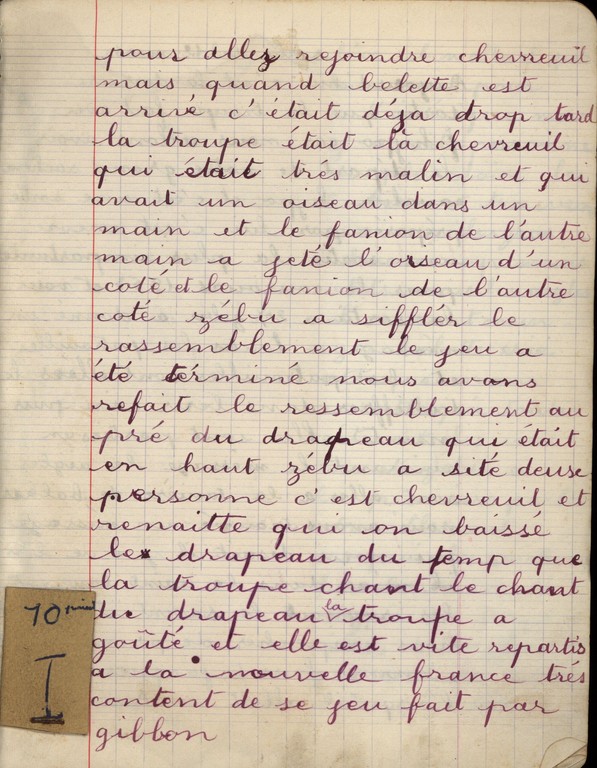 pour allez rejoindre chevreuil
mais quand belette est
arrivé c'était déja drop tard
la troupe était là chevreuil
qui était trés malin et qui
avait un oiseau dans un
main et le fanion de l'autre
main a jeté l'oiseau d'un
coté et le fanion de l'autre
coté zébu a sifflér le
rassemblement le jeu a
été términé nous avons
refait le ressemblement au
pré du drapeau qui était
en haut zébu a sité deuse
personne c'est chevreuil et
renaitte qui on baissé
le drapeau du temp que
la troupe chant le chant
du drapeau la troupe a
goûté et elle est vite repartis
a la nouvelle france trés
content de se jeu fait par
gibbon
10
I